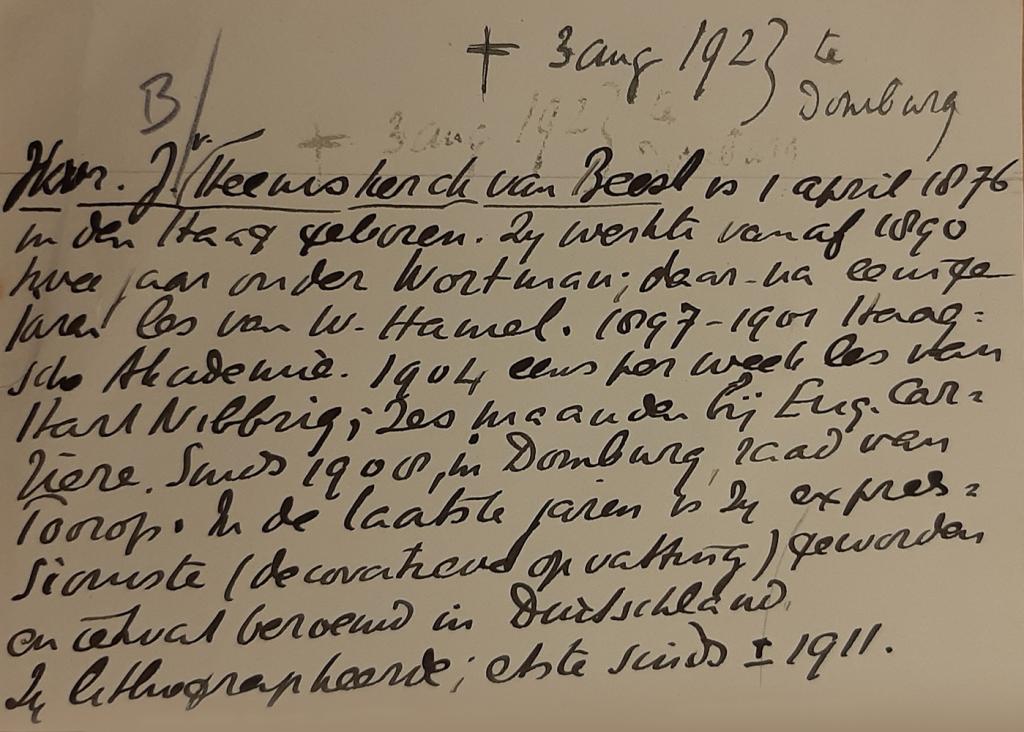 + 3 aug 1923 te
Domburg
B/
Jkvr. J. v. Heemskerck van Beest is 1 april 1876
in den Haag geboren. Zij werkte vanaf 1890
twee jaar onder Wortman; daar-na eenige
jaren les van W. Hamel. 1897-1901 Haag=
sche Akademie. 1904 eens per week les van
Hart Nibbrig; zes maanden bij Eug. Car=
rière. Sinds 1908, in Domburg, raad van
Toorop. In de laatste jaren is zij expres=
sioniste (decoratieve opvatting) geworden
en vooral beroemd in Duitschland.
Zij lithographeerde; etste sinds ± 1911.